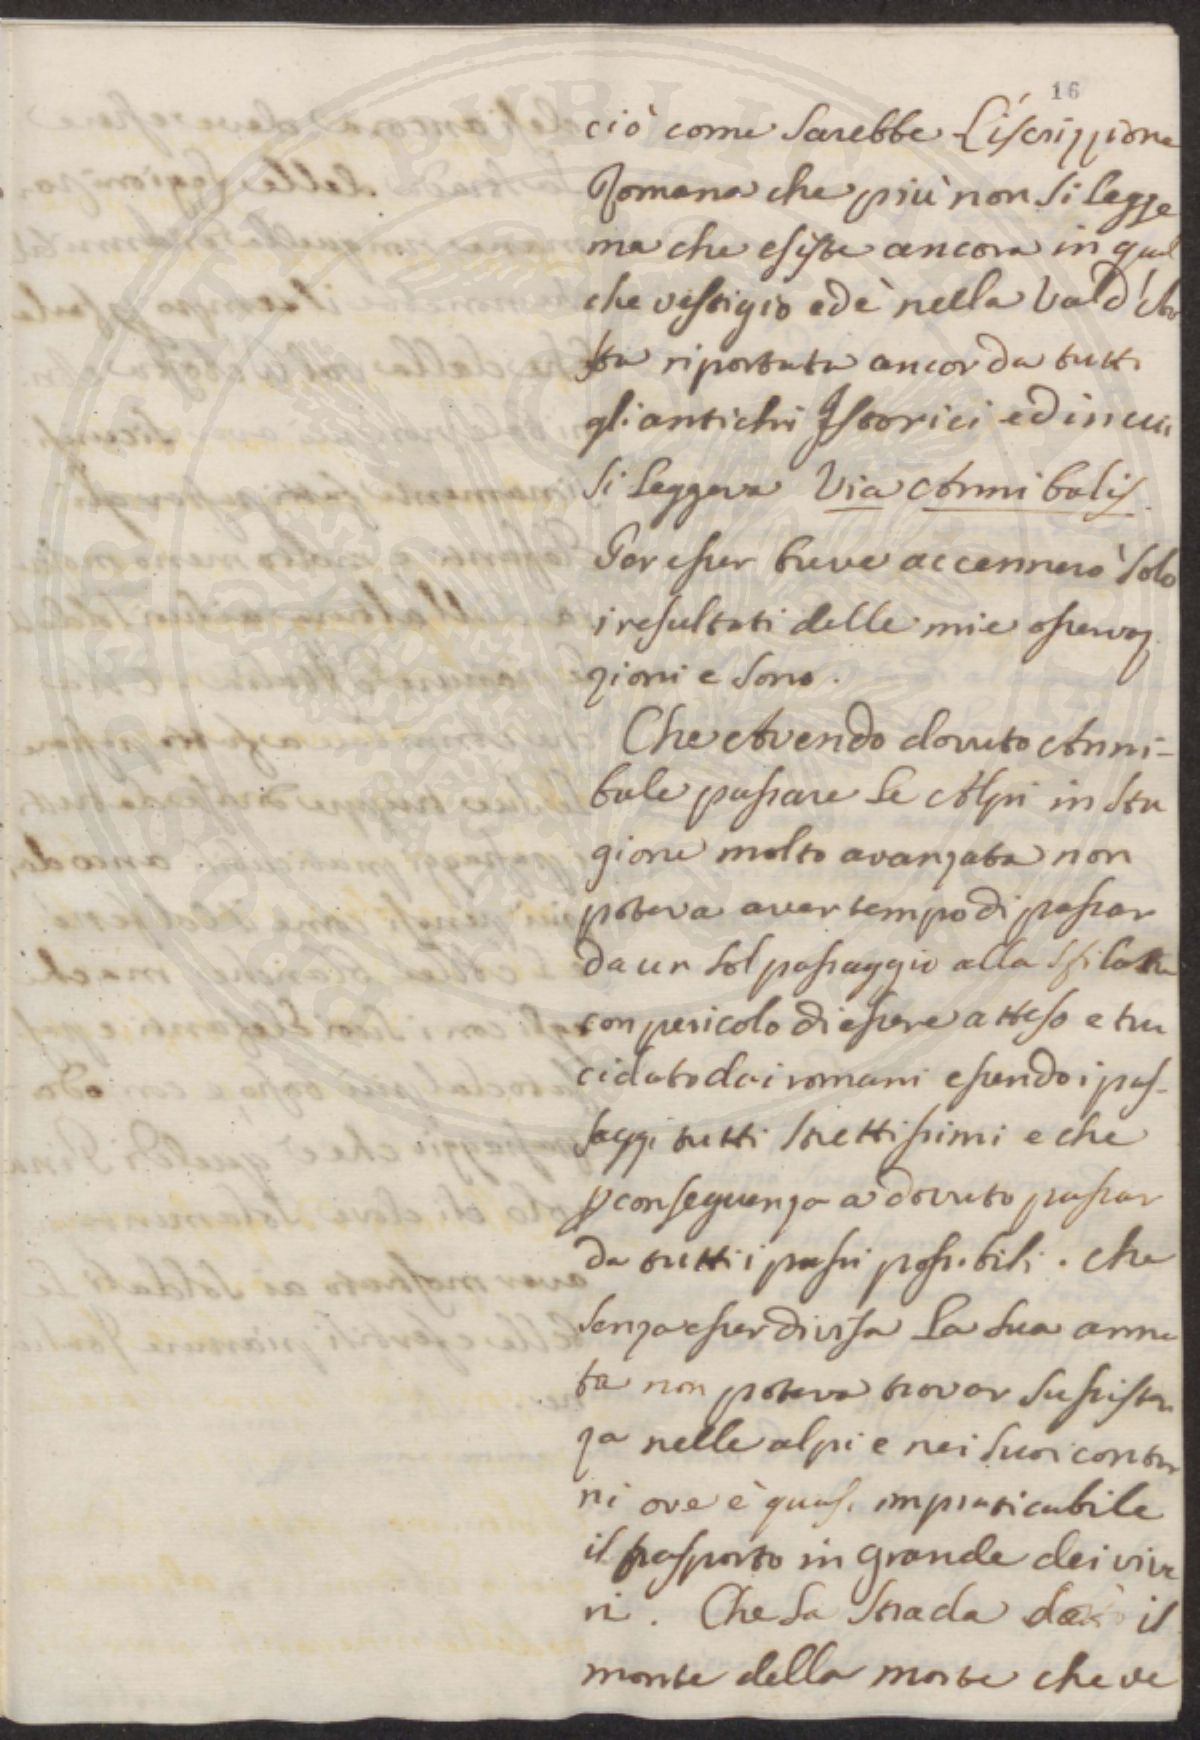 16
ciò come sarebbe L'iscrizzione
Romana che più non si legge
ma che esiste ancora in qual
che vestigio ed è nella Val d'Ao
sta riportata ancor da tutti
gli antichi Istorici ed in cui
si leggeva Via Annibalis.
Per esser breve accennerò solo
i resultati delle mie osservaz
zioni e sono.
Che Avendo dovuto Anni-
bale passare le Alpi in sta
gione molto avanzata non
poteva aver tempo di passar
da un sol passaggio alla sfilata
con pericolo di essere atteso e tru
cidato dai romani essendo i pas-
saggi tutti strettissimi e che
p conseguenza a dovuto passar
da tutti i passi possibili. che
senza esser divisa la sua arma
ta non poteva trovar sussisten
za nelle alpi e nei suoi contor
ni ove è quasi impraticabile
il trasporto in grande dei vive
ri. Che la strada il
monte della morte che ve